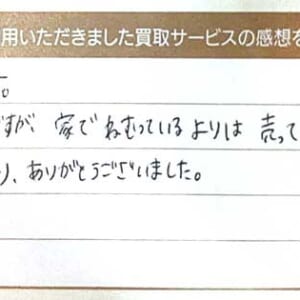 用いただきました買取サービスの感想を
す。
ですが、家でねむっているよりは 売って
り、ありがとうございました。